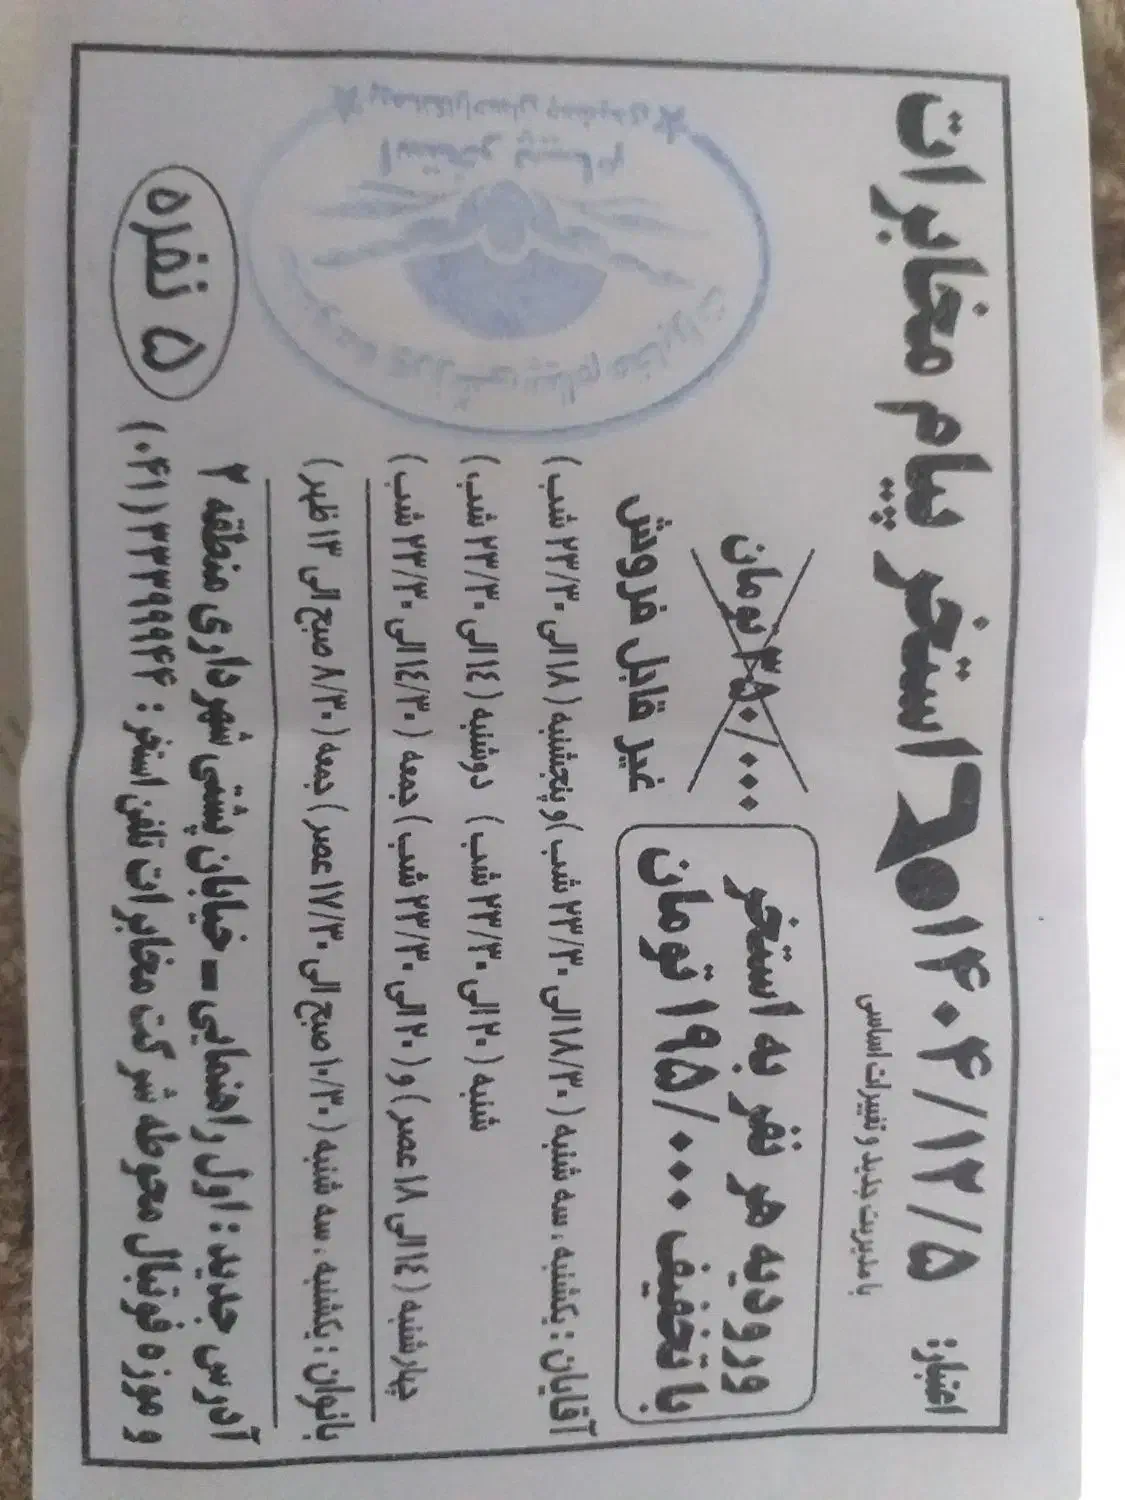 اعتبار: ۱۴۰۴/۱۲/۵ استخر پیام مخابرات
با مدیریت جدید و تغییرات اساسی
ورودیه هر نفر به استخر
با تخفیف ۱۹۵/۰۰۰ تومان
۳۵۰/۰۰۰ تومان
غیر قابل فروش
آقایان : یکشنبه ، سه شنبه ( ۱۸/۳۰ الی ۲۳/۳۰ شب ) و پنجشنبه ( ۱۸ الی ۲۳/۳۰ شب )
شنبه ( ۲۰ الی ۲۳/۳۰ شب ) دوشنبه ( ۱٤ الی ۲۳/۳۰ شب )
چهارشنبه ( ۱٤ الی ۱۸ عصر ) و ( ۲۰ الی ۲۳/۳۰ شب ) جمعه ( ۱٤/۳۰ الی ۲۳/۳۰ شب )
بانوان : یکشنبه ، سه شنبه ( ۱۰/۳۰ صبح الی ۱۷/۳۰ عصر ) جمعه ( ۸/۳۰ صبح الی ۱۳ ظهر )
آدرس جدید : اول راهنمایی - خیابان پشتی شهرداری منطقه ۲
و موزه فوتبال محوطه شرکت مخابرات تلفن استخر : ۳۳۳۹۹۹۴۴ (۰۴۱)
۵ نفره
استخر پیام
پیام مخابرات